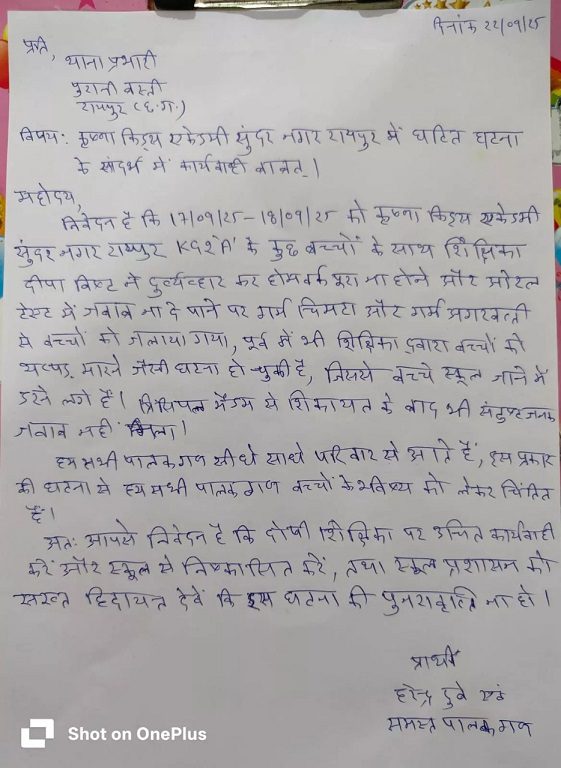 दिनांक 22/09/25
प्रति,
थाना प्रभारी
पुरानी बस्ती
रायपुर (छ.ग.)
विषय: कृष्णा किड्स एकेडमी सुंदर नगर रायपुर में घटित घटना
के संदर्भ में कार्यवाही बाबत्।
महोदय,
निवेदन है कि 17/09/25-18/09/25 को कृष्णा किड्स एकेडमी
सुंदर नगर रायपुर KG2 'A' के कुछ बच्चों के साथ शिक्षिका
दीपा बिष्ट ने दुर्व्यव्हार कर होमवर्क पूरा ना होने और ओरल
टेस्ट में जवाब ना दे पाने पर गर्म चिमटा और गर्म अगरबत्ती
से बच्चों को जलाया गया, पूर्व में भी शिक्षिका द्वारा बच्चों को
थप्पड़ मारने जैसी घटना हो चुकी है, जिससे बच्चे स्कूल जाने में
डरने लगे हैं। प्रिंसिपल मैडम से शिकायत के बाद भी संतुष्टजनक
जवाब नहीं मिला।
हम सभी पालकगण सीधे साधे परिवार से आते हैं, इस प्रकार
की घटना से हम सभी पालकगण बच्चों के भविष्य को लेकर चिंतित
हैं।
अतः आपसे निवेदन है कि दोषी शिक्षिका पर उचित कार्यवाही
करें और स्कूल से निष्कासित करें, तथा स्कूल प्रशासन को
सख्त हिदायत देवें कि इस घटना की पुनरावृत्ति ना हो।
प्रार्थी
दुबे एवं
समस्त पालकगण
Shot on OnePlus